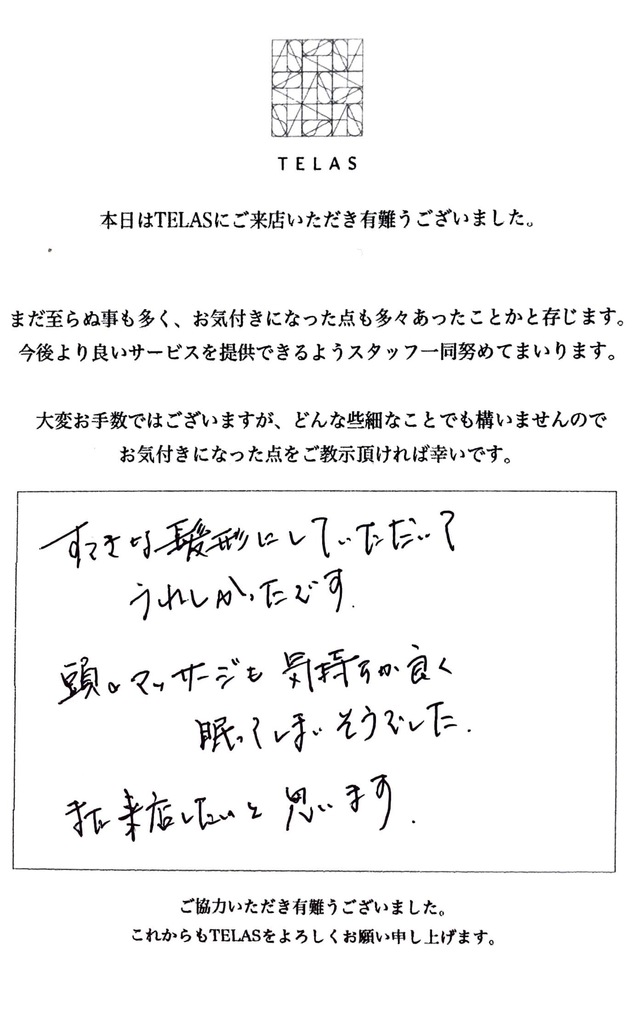 TELAS
本日はTELASにご来店いただき有難うございました。
まだ至らぬ事も多く、お気付きになった点も多々あったことかと存じます。
今後より良いサービスを提供できるようスタッフ一同努めてまいります。
大変お手数ではございますが、どんな些細なことでも構いませんので
お気付きになった点をご教示頂ければ幸いです。
すてきな髪形にしていただいて
うれしかったです.
頭のマッサージも気持ちが良く
眠ってしまいそうでした.
また来店したいと思います.
ご協力いただき有難うございました。
これからもTELASをよろしくお願い申し上げます。